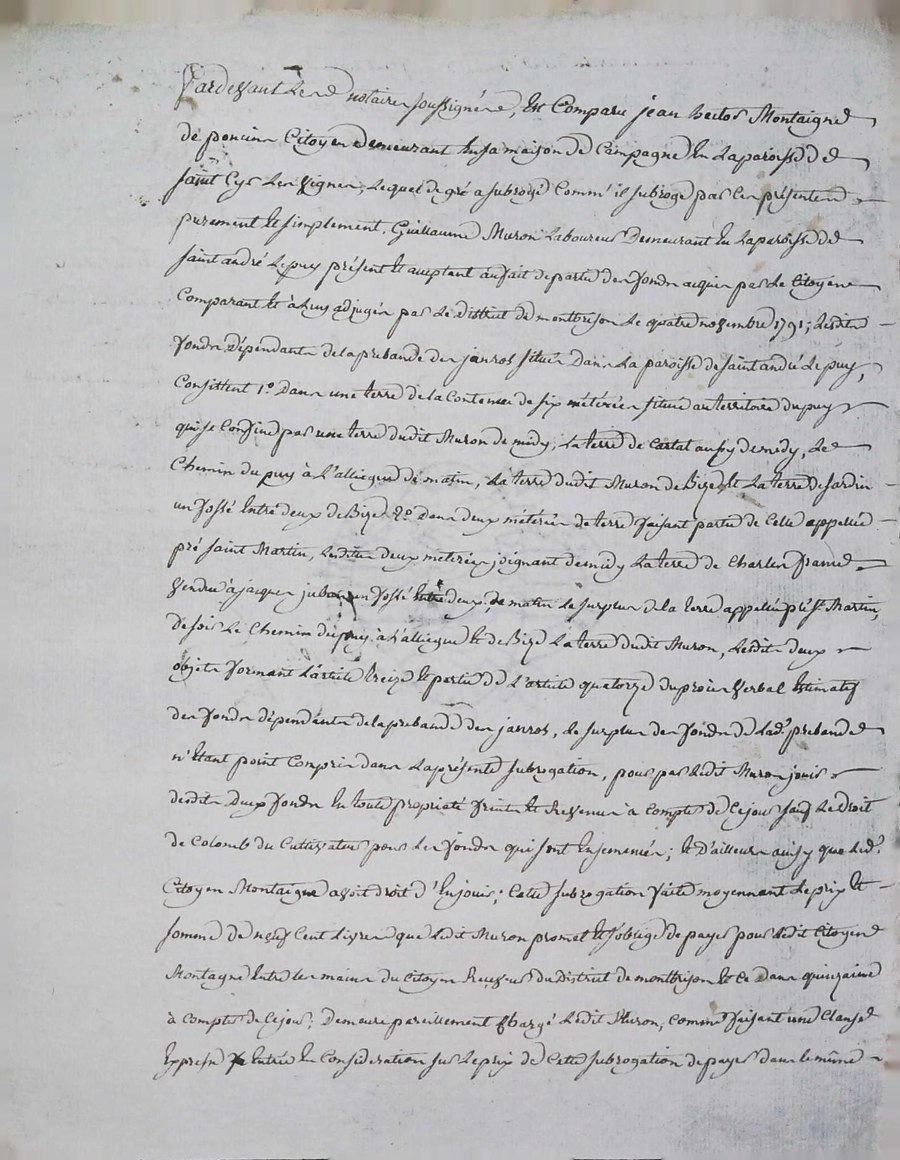 Pardevant Le notaire soussigné, Est Comparu jean hector Montaigne
de poncins Citoyen demeurant En sa maison de Campagne En La paroisse de
saint Cyr Les Vignes, Lequel de gré a subrogé Comm' il subroge par Ces présentes
purement Et simplement, Guillaume Muron Laboureur Demeurant En La paroisse de
saint andré Le puy présent Et acceptant au fait de partie des fonds acquis par Le Citoyen
Comparant Et à Luy adjugés par Le district de montbrison Le quatre novembre 1791; Lesdits
fonds dépendants de la prebande des janros situés Dans La paroisse de saint andré Le puy,
Consistent 1o. Dans une terre de la Contenue de six métérées située au territoire du puy
qui se Confine par une terre dudit Muron de midy, La terre de Cartal aussy de midy, Le
Chemin du puy à L'alliegue de matin, La terre dudit Muron de Bize Et La terre de jardin
un fossé Entre deux de Bize 2o. Dans deux métérées de terre faisant partie de Celle appellée
pré saint Martin, Lesdites deux métérées joignant de midy La terre de Charles
Vendue à jacques un fossé Entre deux de matin Le surplus de la terre appellée pré st. Martin,
de soir Le Chemin du puy à L'alliegue Et de Bize La terre dudit Muron, Lesdits deux
objets formant L'article treize Et partie de L'article quatorze du procès Verbal Estimatif
des fonds dépendants de la prebande des janros, Le surplus des fonds de Lad. prebande
n'Etant point Compris dans La présente subrogation, pour par Ledit Muron jouir
desdits Deux fonds En toute propriété fruits Et Revenus à Compter de Ce jour sauf Le Droit
de Colomb du Cultivateur pour Les fonds qui sont Ensemencés; Et D'ailleurs ainsy que Led.
Citoyen Montaigne avoit droit d'En jouir; Cette subrogation faite moyennant Le prix Et
somme de neuf Cent Livres que Ledit Muron promet Et s'oblige de payer pour Ledit Citoyen
Montagne Entre les mains du Citoyen Receveur du District de montbrison Et Ce Dans quinzaine
à Compter de Ce jour; Demeure pareillement Chargé Ledit Muron, Comme faisant une Clause
Expresse Entrée En Considération sur Le prix de Cette subrogation de payer dans le même